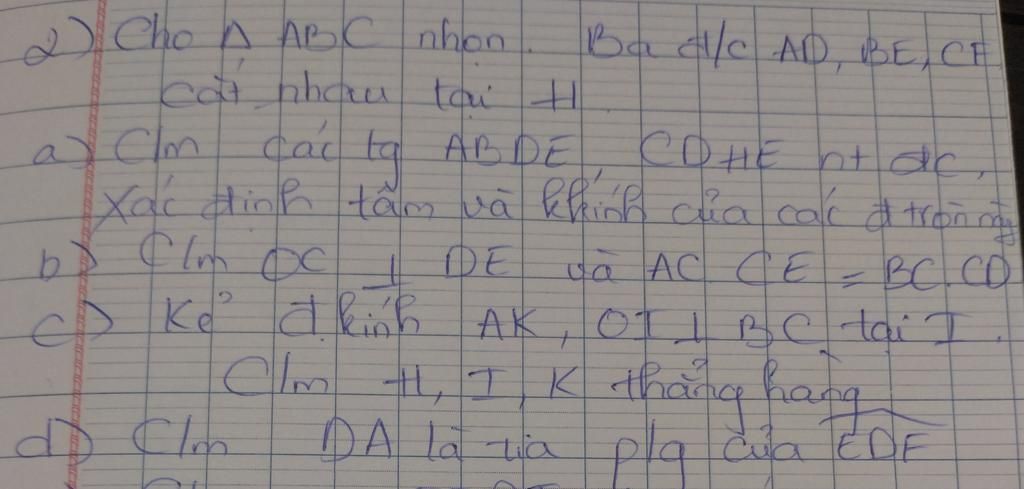 2) Cho Δ ABC nhọn. Ba đ/c AD, BE, CF
cắt nhau tại H
a) C/m các tg ABDE, CDHE nt đc,
Xác định tâm và bkính của các đ tròn này
b) C/m OC ⊥ DE và AC.CE = BC.CD
c) Kẻ đ.kính AK, OI ⊥ BC tại I.
C/m H, I, K thẳng hàng
d) C/m DA là tia p/g của EDF